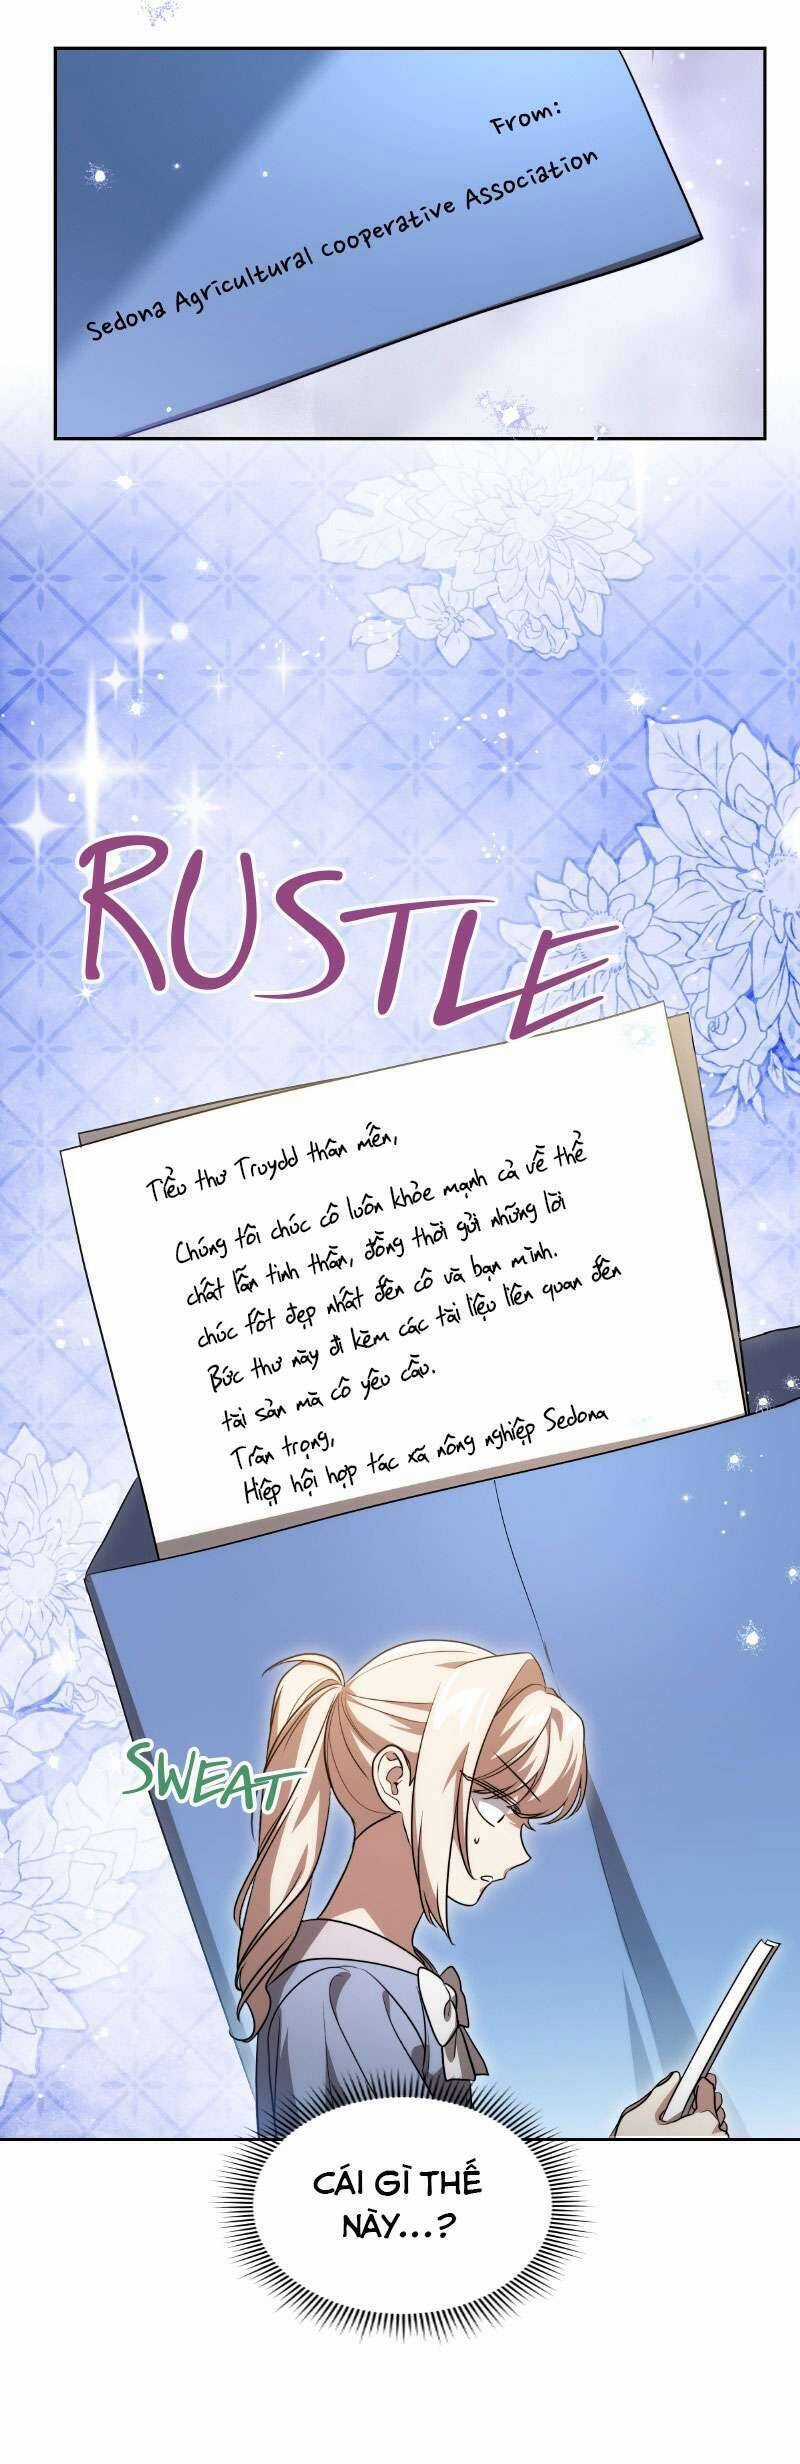 From:
Sedona Agricultural cooperative Association
RUSTLE
Tiểu thư Truydd thân mến,
Chúng tôi chúc cô luôn khỏe mạnh cả về thể
chất lẫn tinh thần, đồng thời gửi những lời
chúc tốt đẹp nhất đến cô và bạn mình.
Bức thư này đi kèm các tài liệu liên quan đến
tài sản mà cô yêu cầu.
Trân trọng,
Hiệp hội hợp tác xã nông nghiệp Sedona
SWEAT
CÁI GÌ THẾ
NÀY...?